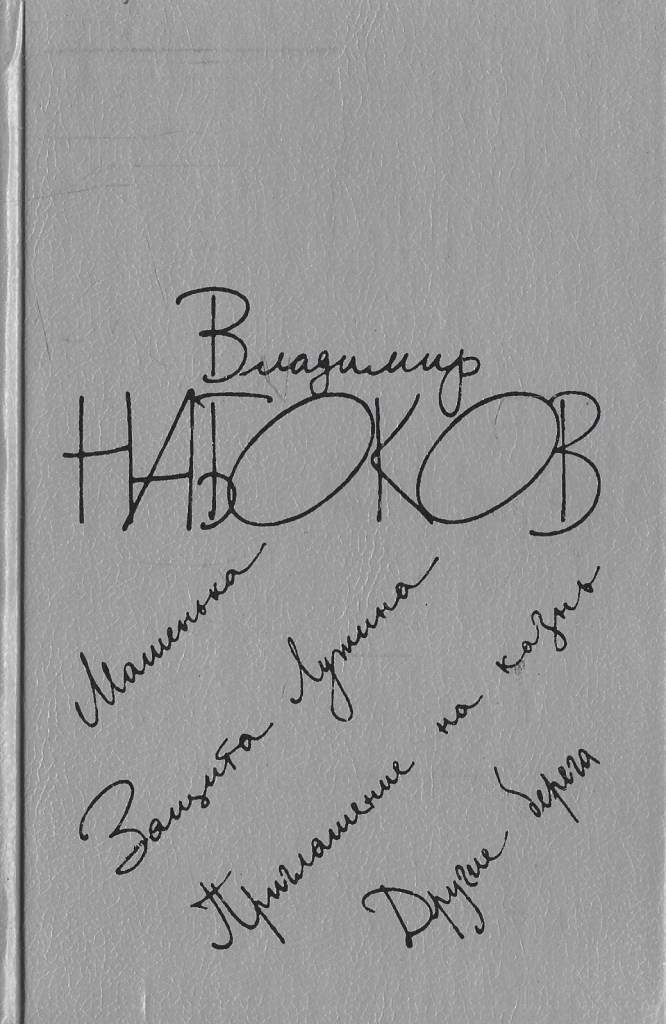 Владимир
НАБОКОВ
Машенька
Защита Лужина
Приглашение на казнь
Другие берега